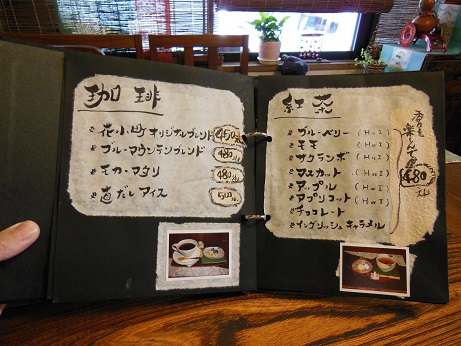 珈琲
花小町オリジナルブレンド 450
ブルーマウンテンブレンド 480
モカ・マタリ 480
直だしアイス 500
紅茶
ブルーベリー (H or I)
モモ (H or I)
サクランボ (H or I)
マスカット (H or I)
アップル (H or I)
アプリコット (H or I)
チョコレート
イングリッシュキャラメル
香りを
楽しんで
480